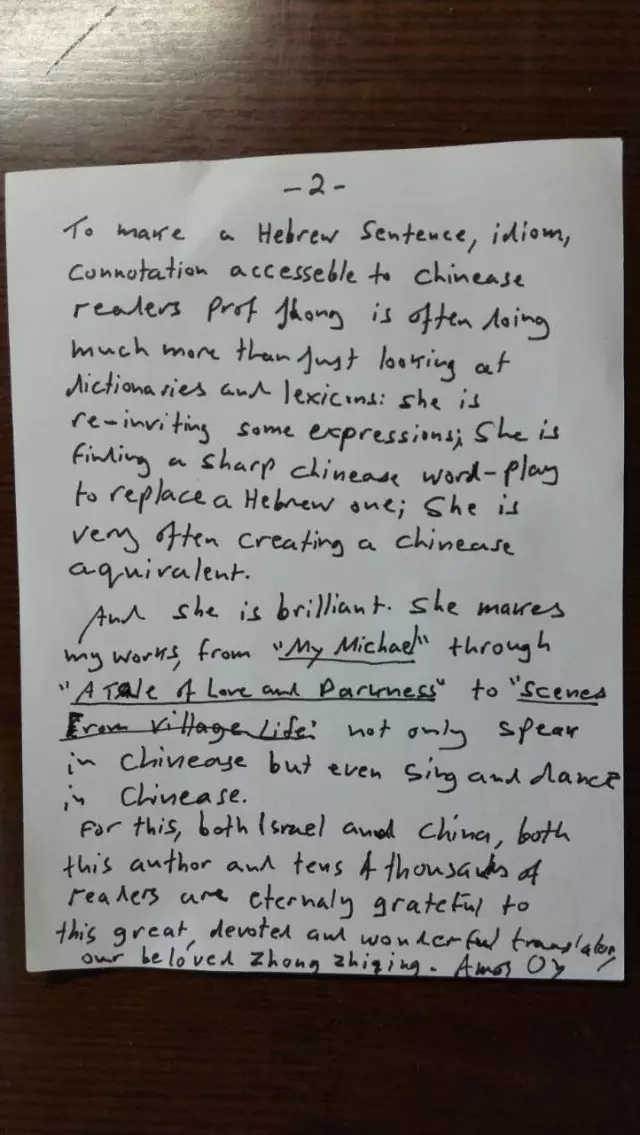 - 2 -
To make a Hebrew Sentence, idiom,
Connotation accesseble to chinease
readers Prof Jhong is often doing
much more than just looking at
dictionaries and lexicons: she is
re-inviting some expressions; She is
finding a sharp chinease word-play
to replace a Hebrew one; She is
very often creating a chinease
aquivalent.
And she is brilliant. She makes
my works, from "My Michael" through
"A Tale of Love and Darkness" to "Scenes
From Village Life" not only speak
in Chinease but even sing and dance
in Chinease.
For this, both Israel and China, both
this author and tens of thousands of
readers are eternaly grateful to
this great, devoted and wonderful translator,
our beloved Zhong Zhiqing. Amos Oz